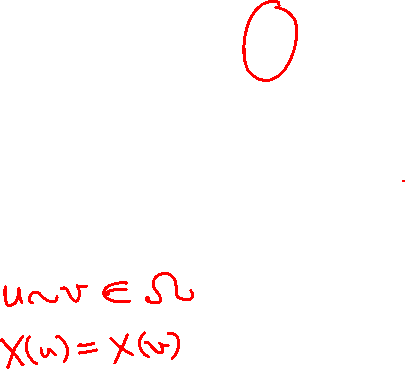 u~v ∈ Ω
X(u) = X(v)